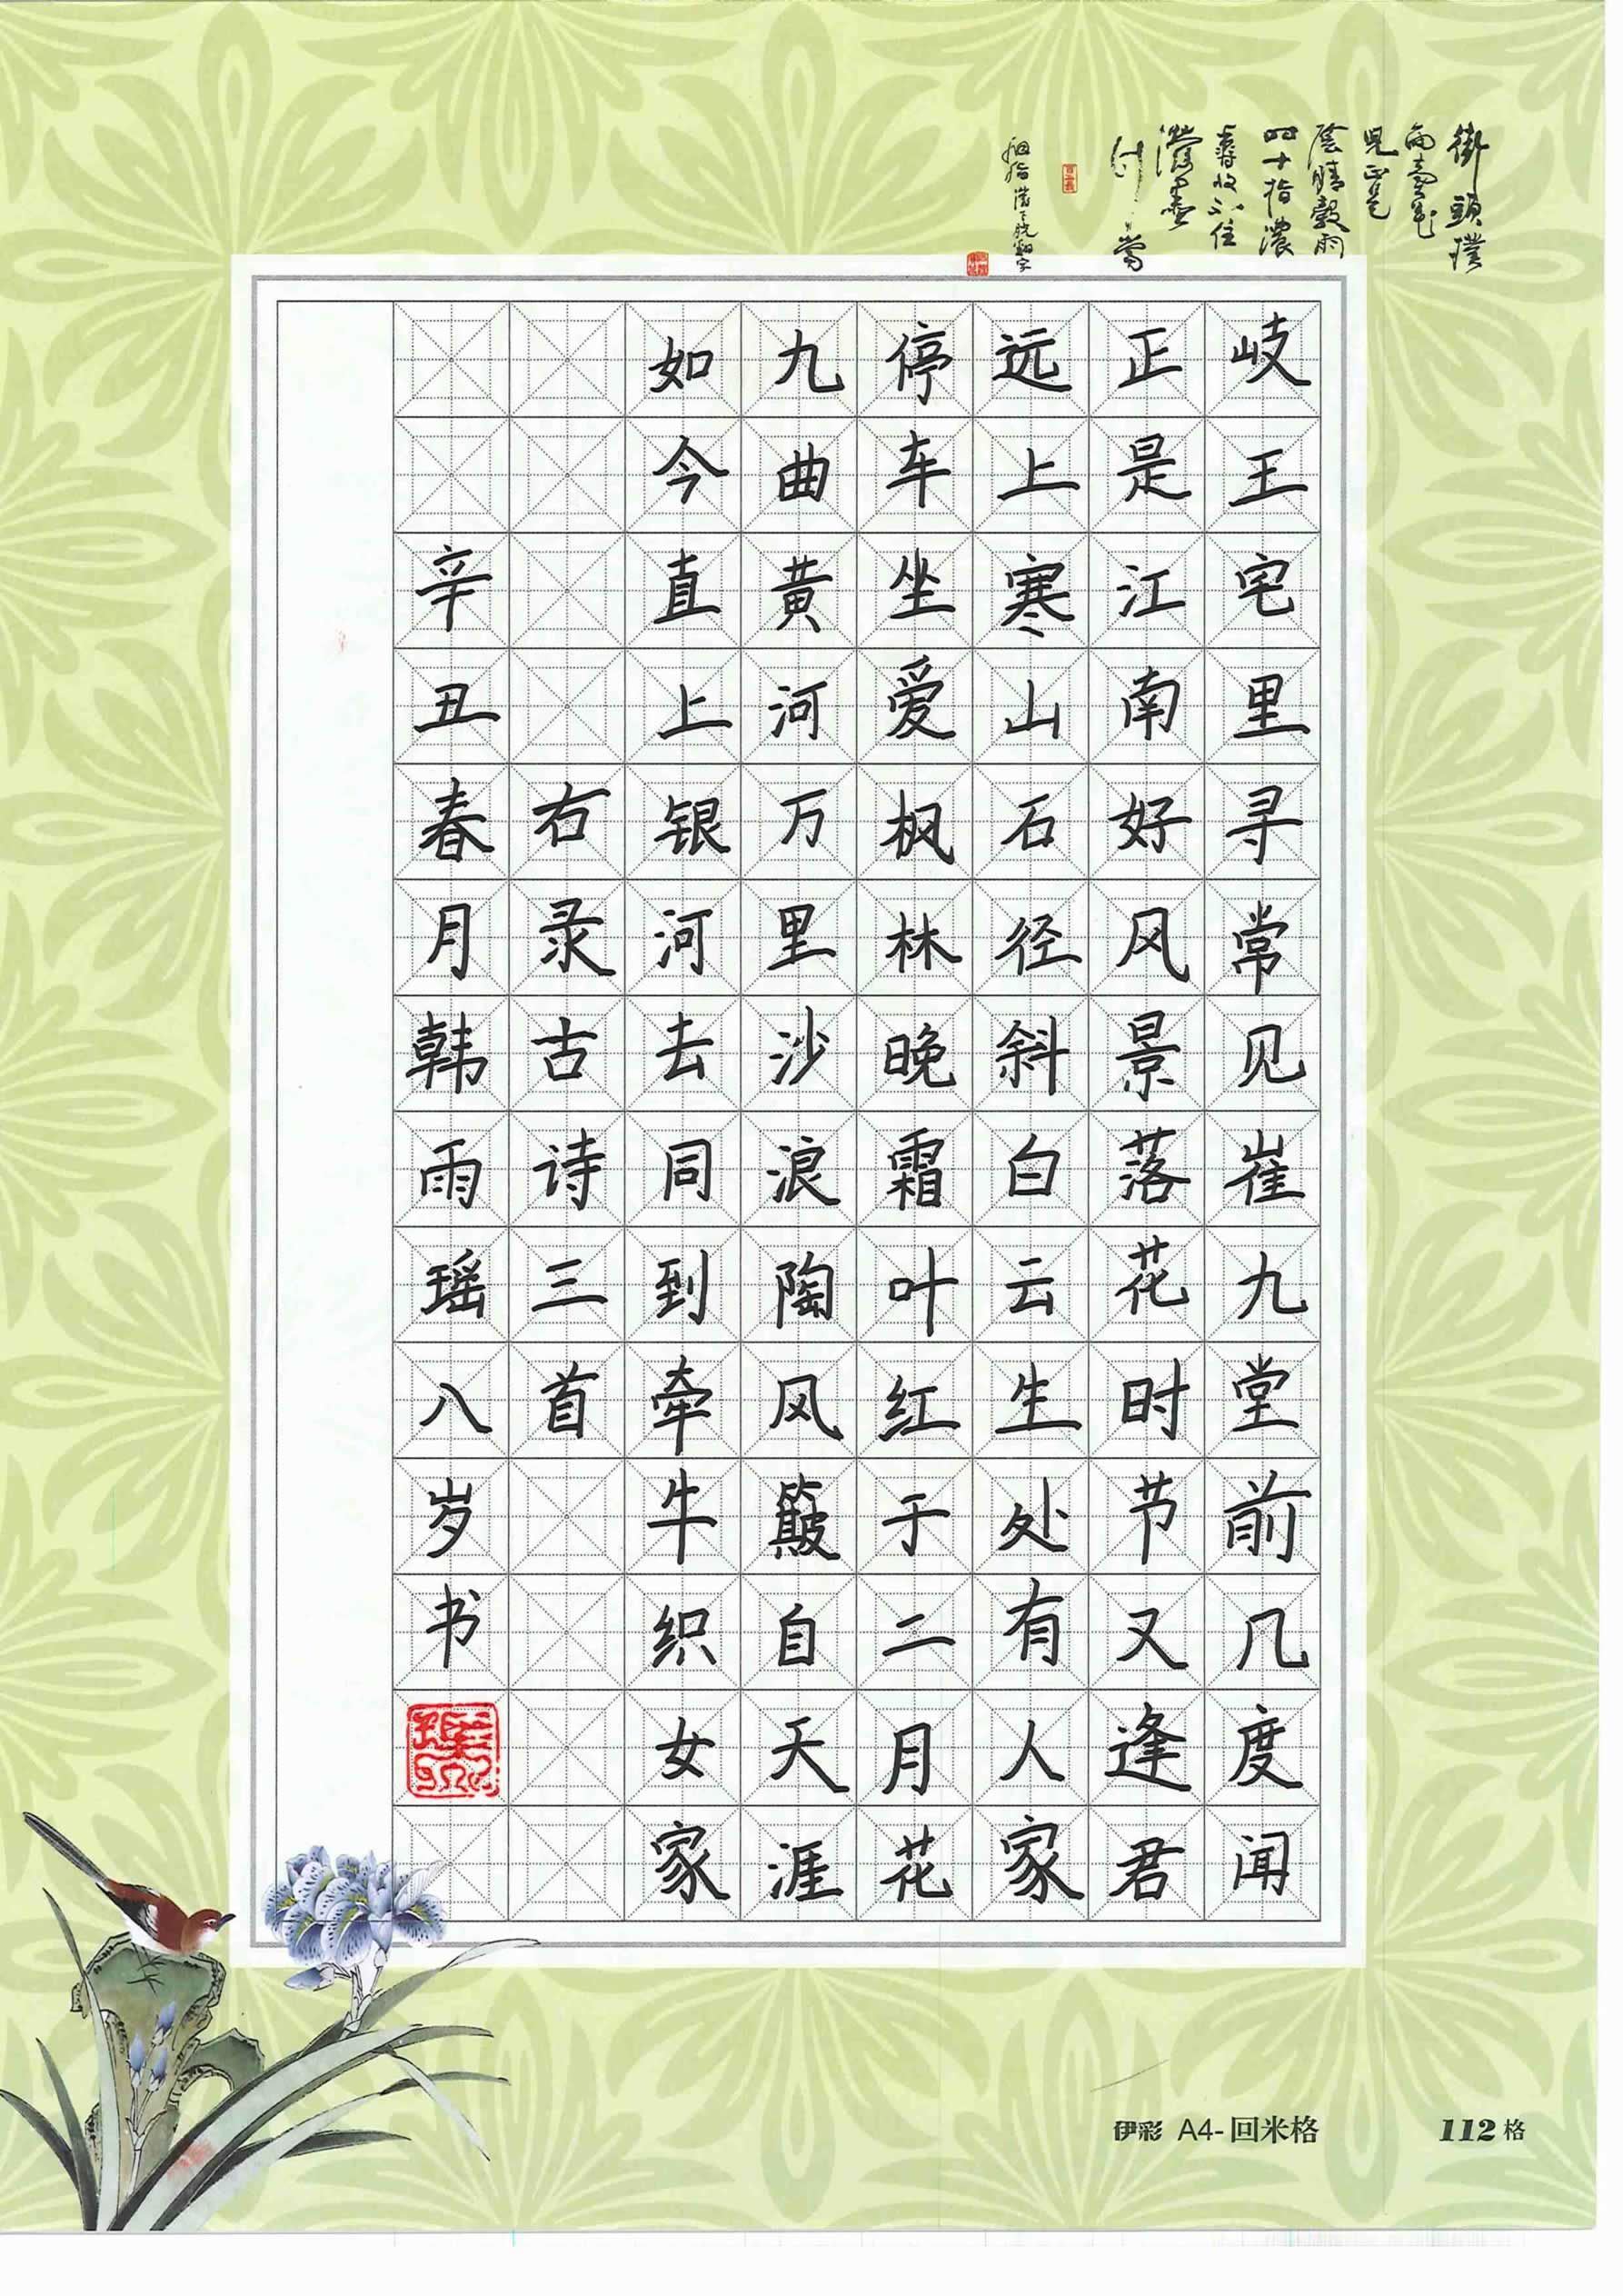 岐王宅里寻常见崔九堂前几度闻
正是江南好风景落花时节又逢君
远上寒山石径斜白云生处有人家
停车坐爱枫林晚霜叶红于二月花
九曲黄河万里沙浪陶风簸自天涯
如今直上银河去同到牵牛织女家
右录古诗三首
辛丑春月韩雨瑶八岁书
伊彩 A4-回米格 112格